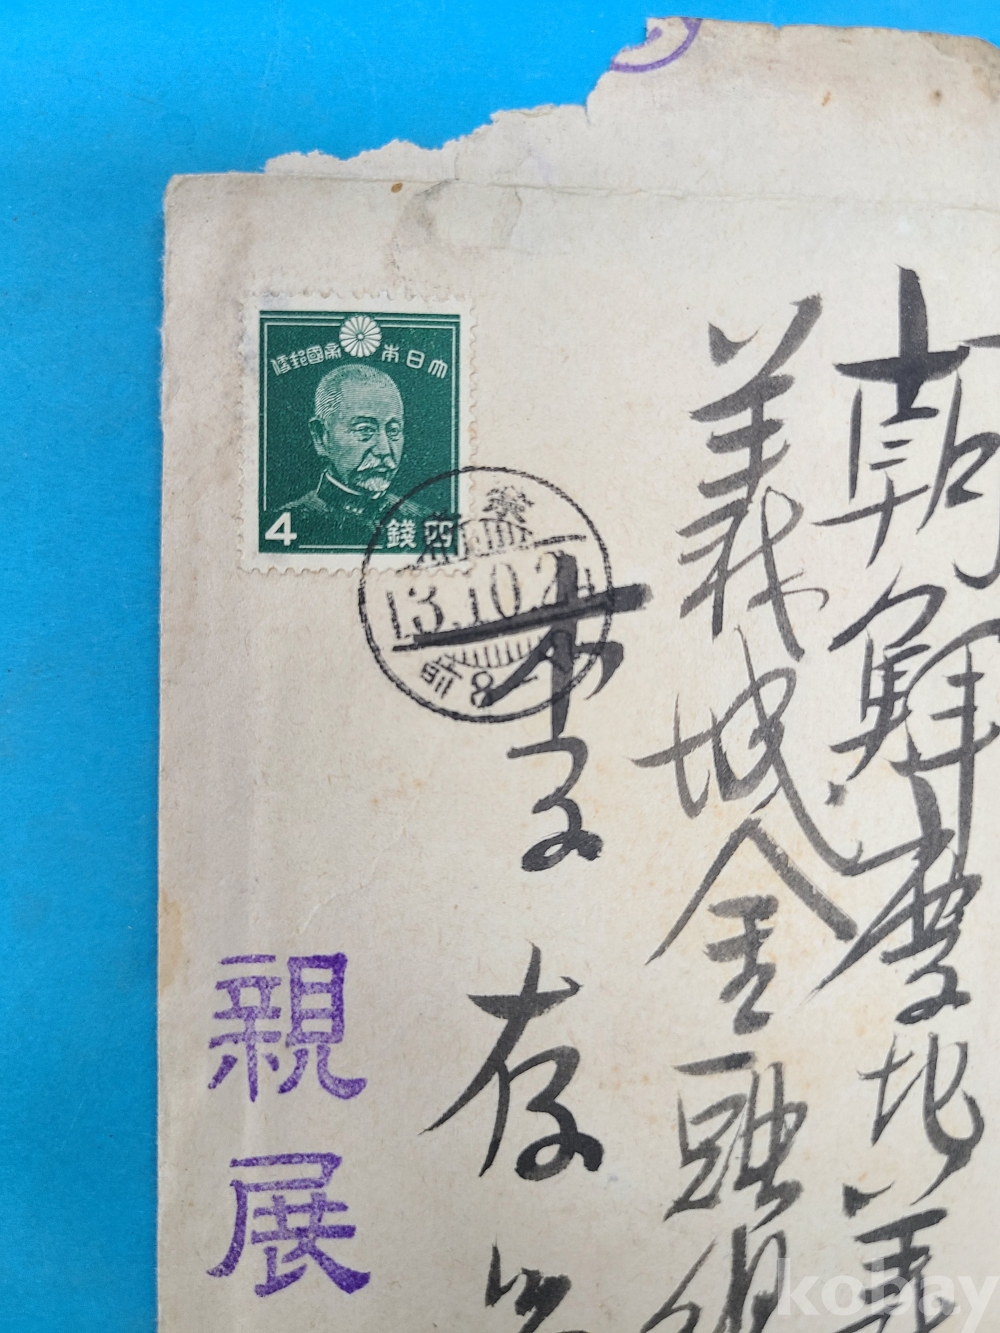 大日本帝國郵便
4 四錢
13.10.2
前8
朝鮮慶北義
義城金頭洞
李存
親展
kobay